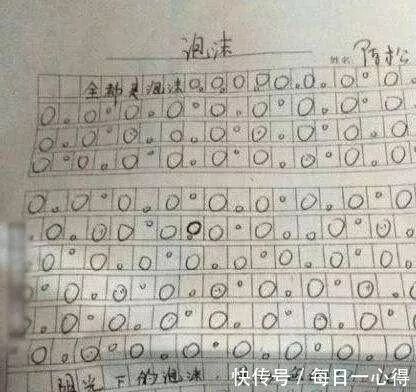 泡沫
姓名 陈松
全都是泡沫
阳光下的泡沫
快传号 / 每日一心得